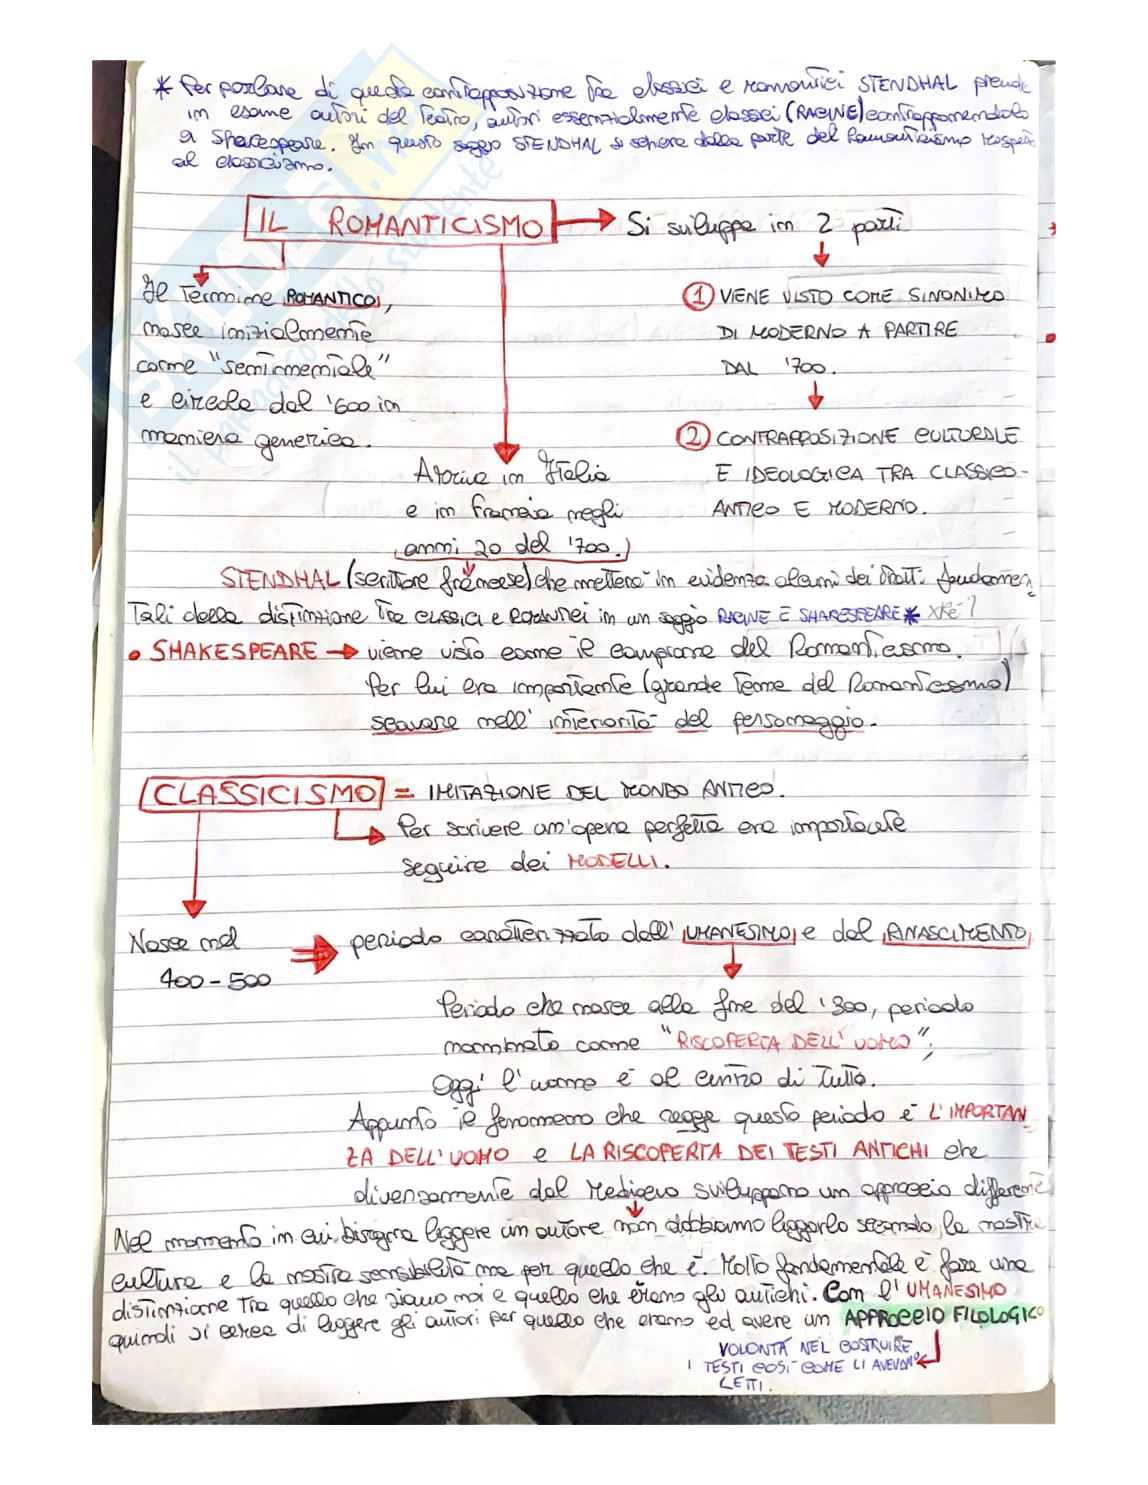 * Per parlare di questa contrapposizione tra classici e romantici STENDHAL prende
in esame autori del Teatro, autori essenzialmente classici (RACINE) contrapponendolo
a Shakespeare. In questo saggio STENDHAL si schiera dalla parte del Romanticismo rispett
al classicismo.
IL ROMANTICISMO → Si sviluppa in 2 parti
Il Termine ROMANTICO,
nasce inizialmente
come "sentimentale"
e circola dal '600 in
maniera generica.
① VIENE VISTO COME SINONIMO
DI MODERNO A PARTIRE
DAL '700.
② CONTRAPPOSIZIONE CULTURALE
E IDEOLOGICA TRA CLASSICO-
ANTICO E MODERNO.
Arriva in Italia
e in Francia negli
anni 20 del '700.
STENDHAL (scrittore francese) che metterà in evidenza alcuni dei tratti fondamen
Tali della distinzione tra CLASSICI e ROMANTICI in un saggio RACINE E SHAKESPEARE * XKÈ?
• SHAKESPEARE → viene visto come il campione del Romanticismo.
Per lui era importante (grande tema del Romanticismo)
scavare nell'interiorità del personaggio.
CLASSICISMO = IMITAZIONE DEL MONDO ANTICO.
Per scrivere un'opera perfetta era importante
seguire dei MODELLI.
Nasce nel
400-500
⇒ periodo caratterizzato dall'UMANESIMO e dal RINASCIMENTO
Periodo che nasce alla fine del '300, periodo
nominato come "RISCOPERTA DELL'UOMO";
Oggi l'uomo è al centro di tutto.
Appunto il fenomeno che regge questo periodo è L'IMPORTAN
ZA DELL'UOMO e LA RISCOPERTA DEI TESTI ANTICHI che
diversamente dal Medioevo sviluppano un approccio differente
Nel momento in cui bisogna leggere un autore non dobbiamo leggerlo secondo la nostra
cultura e la nostra sensibilità ma per quello che è. Molto fondamentale è fare una
distinzione tra quello che siamo noi e quello che erano gli antichi. Con l'UMANESIMO
quindi si cerca di leggere gli autori per quello che erano ed avere un APPROCCIO FILOLOGICO
VOLONTÀ NEL COSTRUIRE
I TESTI COSÌ COME LI AVEVANO
LETTI.